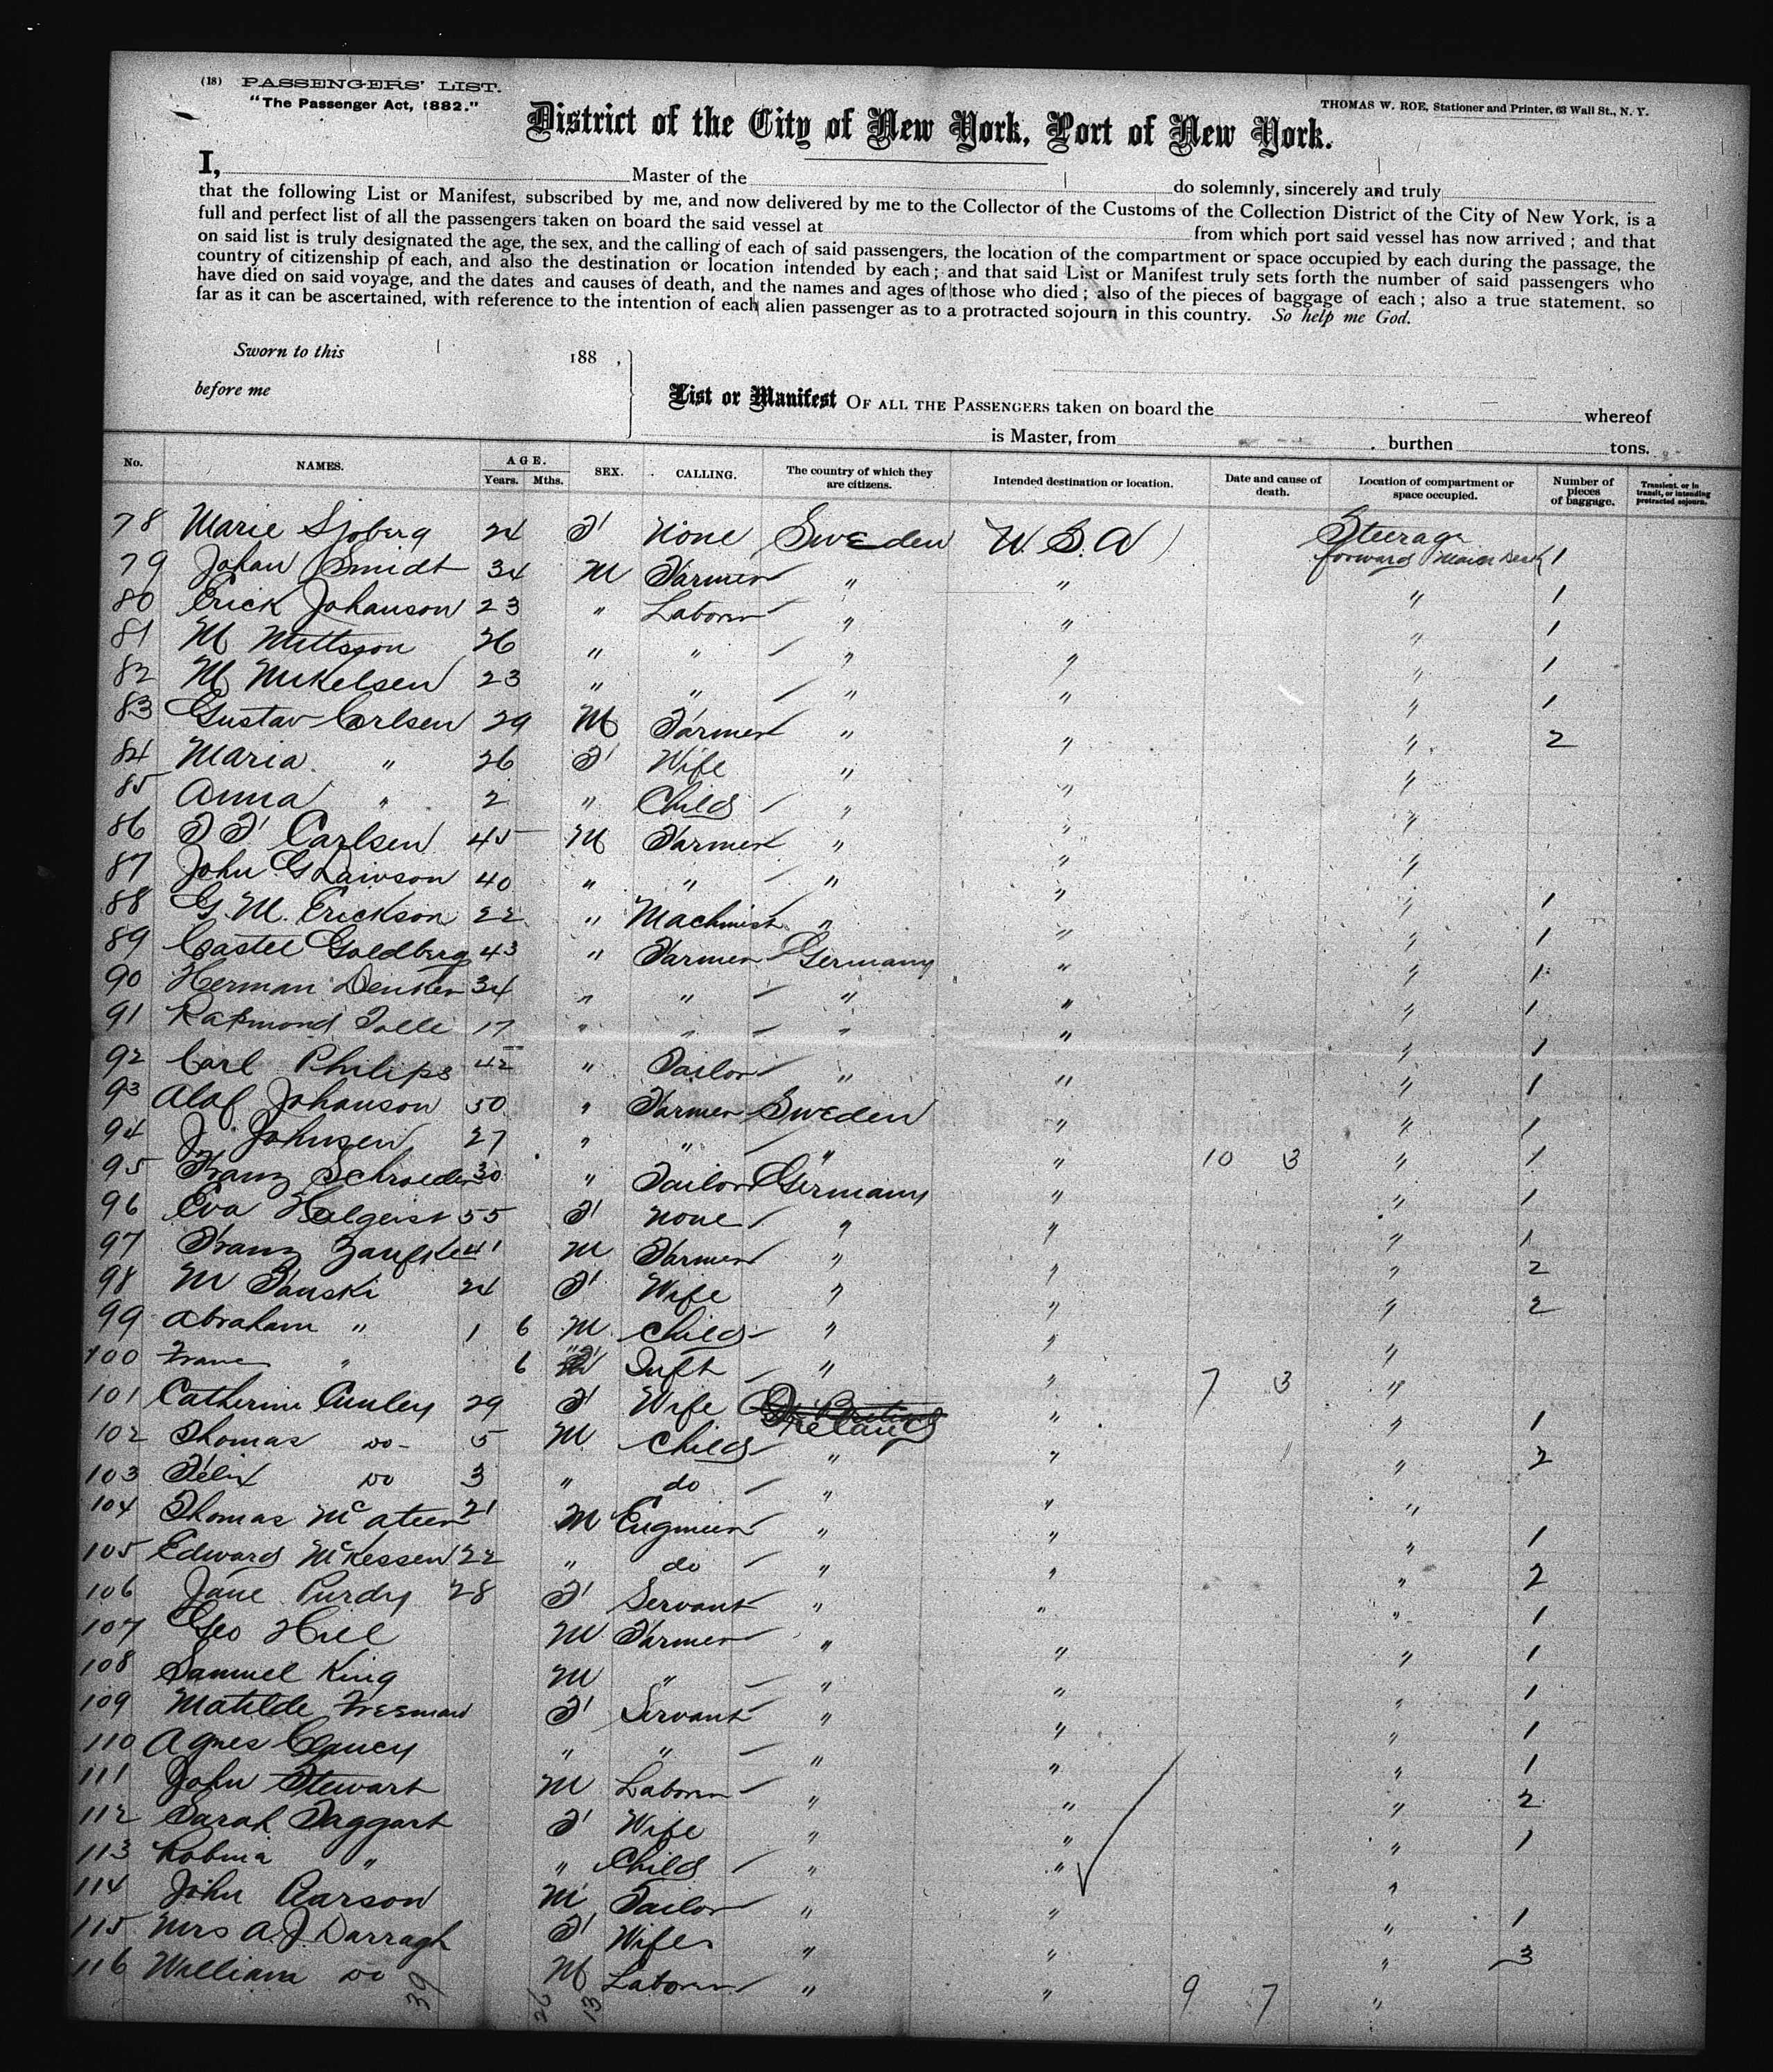 (18) PASSENGERS' LIST.
"The Passenger Act, 1882."
THOMAS W. ROE, Stationer and Printer, 63 Wall St., N. Y.
District of the City of New York, Port of New York.
I, Master of the do solemnly, sincerely and truly
that the following List or Manifest, subscribed by me, and now delivered by me to the Collector of the Customs of the Collection District of the City of New York, is a
full and perfect list of all the passengers taken on board the said vessel at from which port said vessel has now arrived; and that
on said list is truly designated the age, the sex, and the calling of each of said passengers, the location of the compartment or space occupied by each during the passage, the
country of citizenship of each, and also the destination or location intended by each; and that said List or Manifest truly sets forth the number of said passengers who
have died on said voyage, and the dates and causes of death, and the names and ages of those who died; also of the pieces of baggage of each; also a true statement, so
far as it can be ascertained, with reference to the intention of each alien passenger as to a protracted sojourn in this country. So help me God.
Sworn to this 188 ,
before me
List or Manifest OF ALL THE PASSENGERS taken on board the whereof
is Master, from burthen tons.
No. NAMES. AGE. Years. Mths. SEX. CALLING. The country of which they are citizens. Intended destination or location. Date and cause of death. Location of compartment or space occupied. Number of pieces of baggage. Transient, or in transit, or intending protracted sojourn.
78 Marie Sjoberg 24 F None Sweden U.S.A Steerage forward Main Deck 1
79 Johan Smidt 34 M Farmer " " " 1
80 Erick Johanson 23 " Laborer " " " 1
81 M Mattsson 26 " " " " " 1
82 M Mikelsen 23 " " " " " 1
83 Gustav Carlsen 29 M Farmer " " " 2
84 Maria " 26 F Wife " " "
85 Anna " 2 " Child " " "
86 F F Carlsen 45 M Farmer " " "
87 John G Lawson 40 " " " " " 1
88 G. M. Erickson 22 " Machinist " " " 1
89 Goldberg 43 " Farmer Germany " " 1
90 Herman Denker 34 " " " " " 1
91 17 " " " " " 1
92 Carl Philips 42 " Tailor " " " 1
93 Alaf Johanson 50 " Farmer Sweden " " 1
94 J. Johnsen 27 " " " " 10 3 " 1
95 Franz Schroeder 30 " Tailor Germany " " 1
96 Eva 55 F None " " " 1
97 Franz 41 M Farmer " " " 2
98 M Panski 24 F Wife " " " 2
99 Abraham " 1 6 M Child " " "
100 " 6 Inft " " 7 3 "
101 Catherine 29 F Wife Ireland " " 1
102 Thomas do 5 M Child " " " 2
103 Felix do 3 " do " " "
104 Thomas McAteer 21 M Engineer " " " 1
105 Edward McKessen 22 " do " " " 2
106 Jane Purdy 28 F Servant " " " 1
107 Geo Hill M Farmer " " " 1
108 Samuel King M " " " " 1
109 Matilde F Servant " " " 1
110 Agnes Clancy " " " " " 1
111 John Stewart M Laborer " " " 2
112 Sarah Taggart F Wife " " " 1
113 Robina " " Child " " "
114 John Carson M Tailor " " " 1
115 Mrs A. J. Darragh F Wife " " " 3
116 William do M Laborer " " 9 7 "
39 26 13